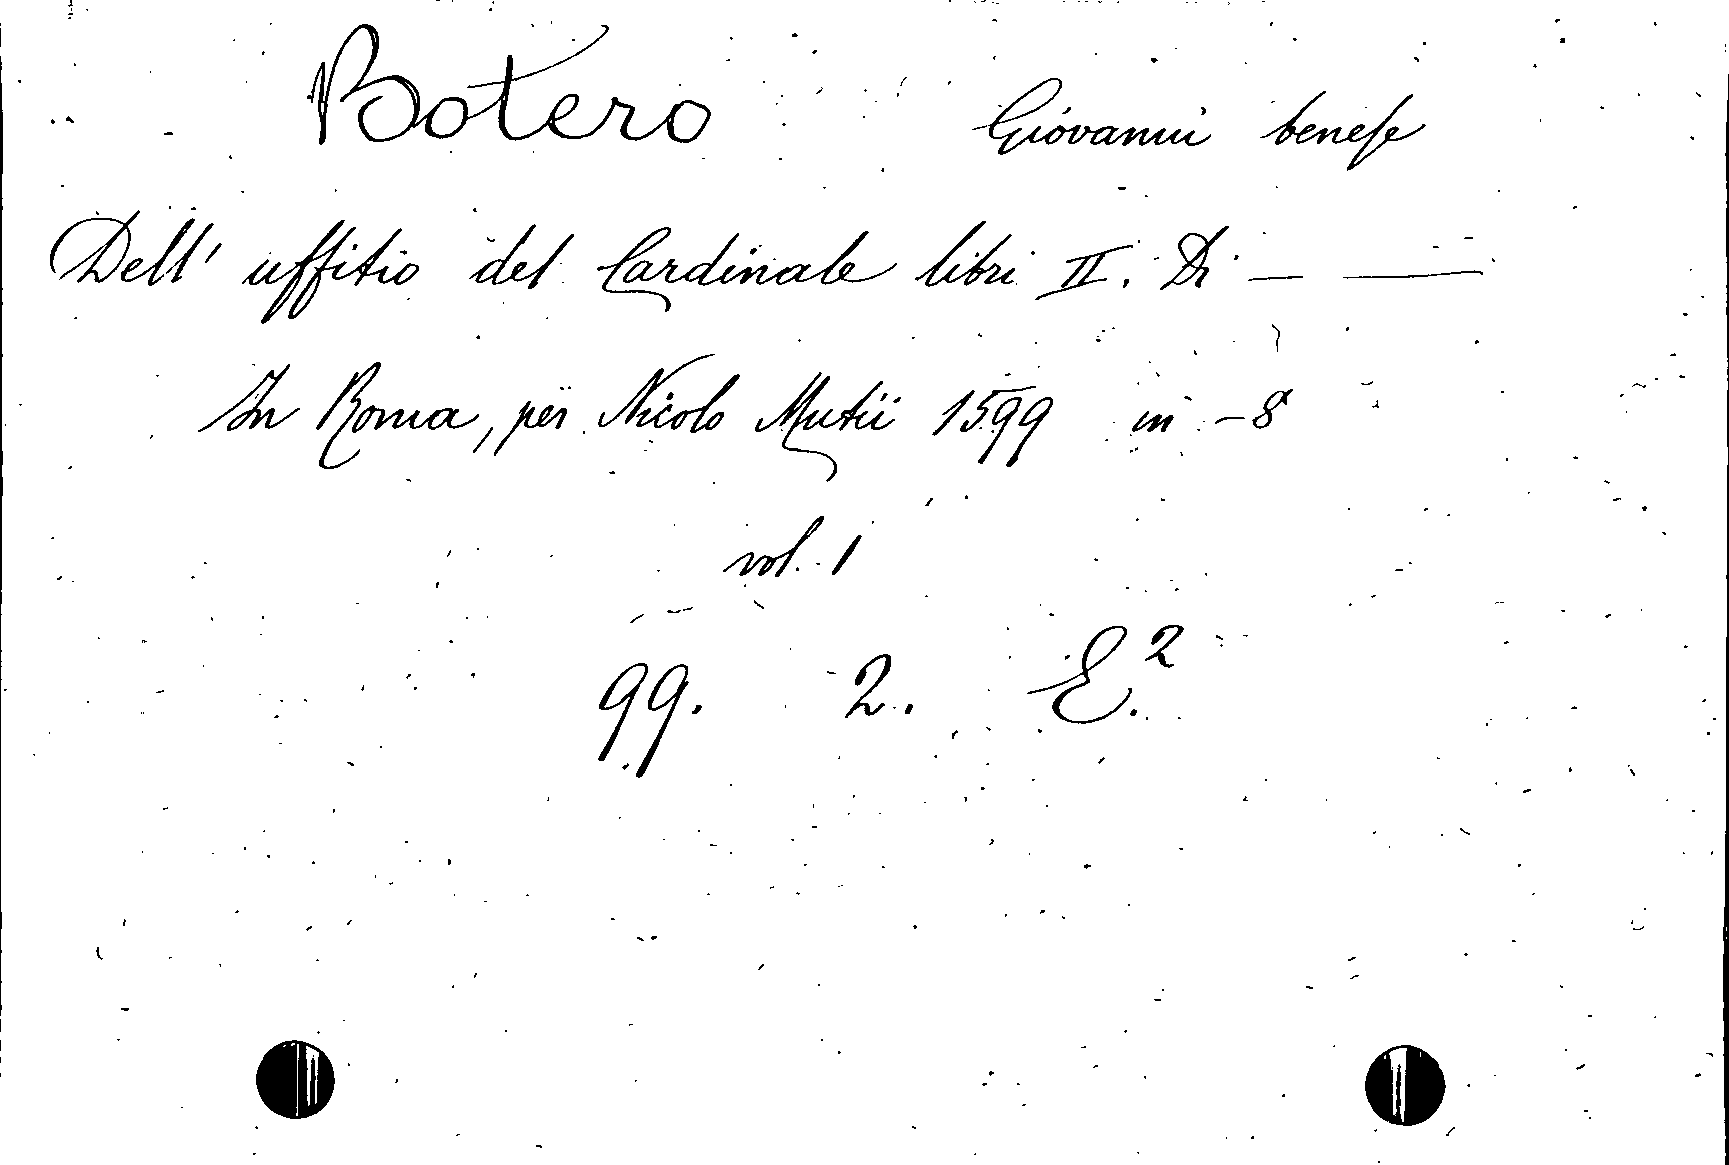 Botero Giovanni benese
Dell' uffitio del Cardinale libri II. Di — —
In Roma, per Nicolo Mutii 1599 in -8
vol. 1
99. 2. E.²